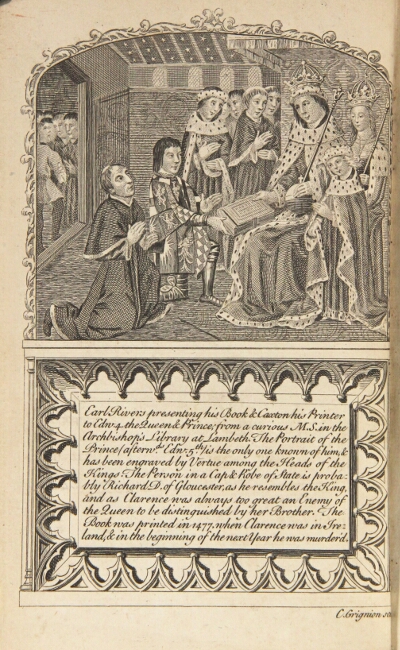 Earl Rivers presenting his Book & Caxton his Printer
to Edw. 4. the Queen & Prince; from a curious M.S. in the
Archbishop's Library at Lambeth. The Portrait of the
Prince (afterw.ds Edw. 5.th) is the only one known of him, &
has been engraved by Vertue among the Heads of the
Kings. The Person in a Cap & Robe of State is proba-
bly Richard D. of Gloucester, as he resembles the King,
and as Clarence was always too great an Enemy of
the Queen to be distinguished by her Brother. The
Book was printed in 1477. when Clarence was in Ire-
land, & in the beginning of the next Year he was murder'd.
C. Grignion